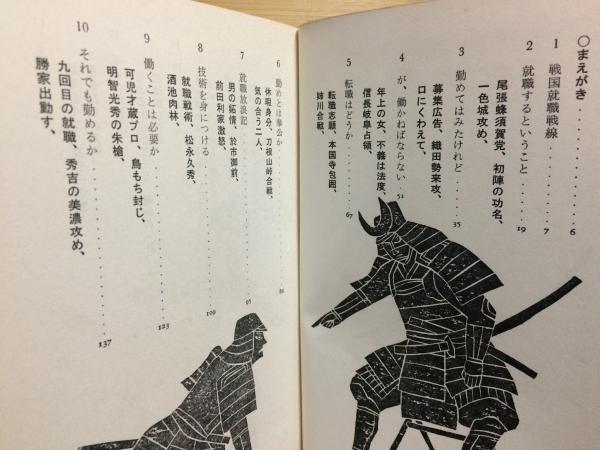 ○まえがき……………6
1 戦国就職戦線……………7
尾張蜂須賀党、初陣の功名、
一色城攻め、
2 就職するということ……………19
募集広告、織田勢来攻、
口にくわえて、
3 勤めてはみたけれど……………35
年上の女、不義は法度、
信長岐阜占領、
4 が、働かねばならない……………51
転職志願、本国寺包囲、
姉川合戦、
5 転職はどうか……………67
休暇身分、刀根山峠合戦、
気の合う二人、
6 勤めとは奉公か……………86
男の拓情、於市御前、
前田利家激怒、
7 就職放浪記……………95
就職戦術、松永久秀、
酒池肉林、
8 技術を身につける……………109
可児才蔵プロ、鳥もち封じ、
明智光秀の朱槍、
9 働くことは必要か……………123
九回目の就職、秀吉の美濃攻め、
勝家出動す、
10 それでも勤めるか……………137